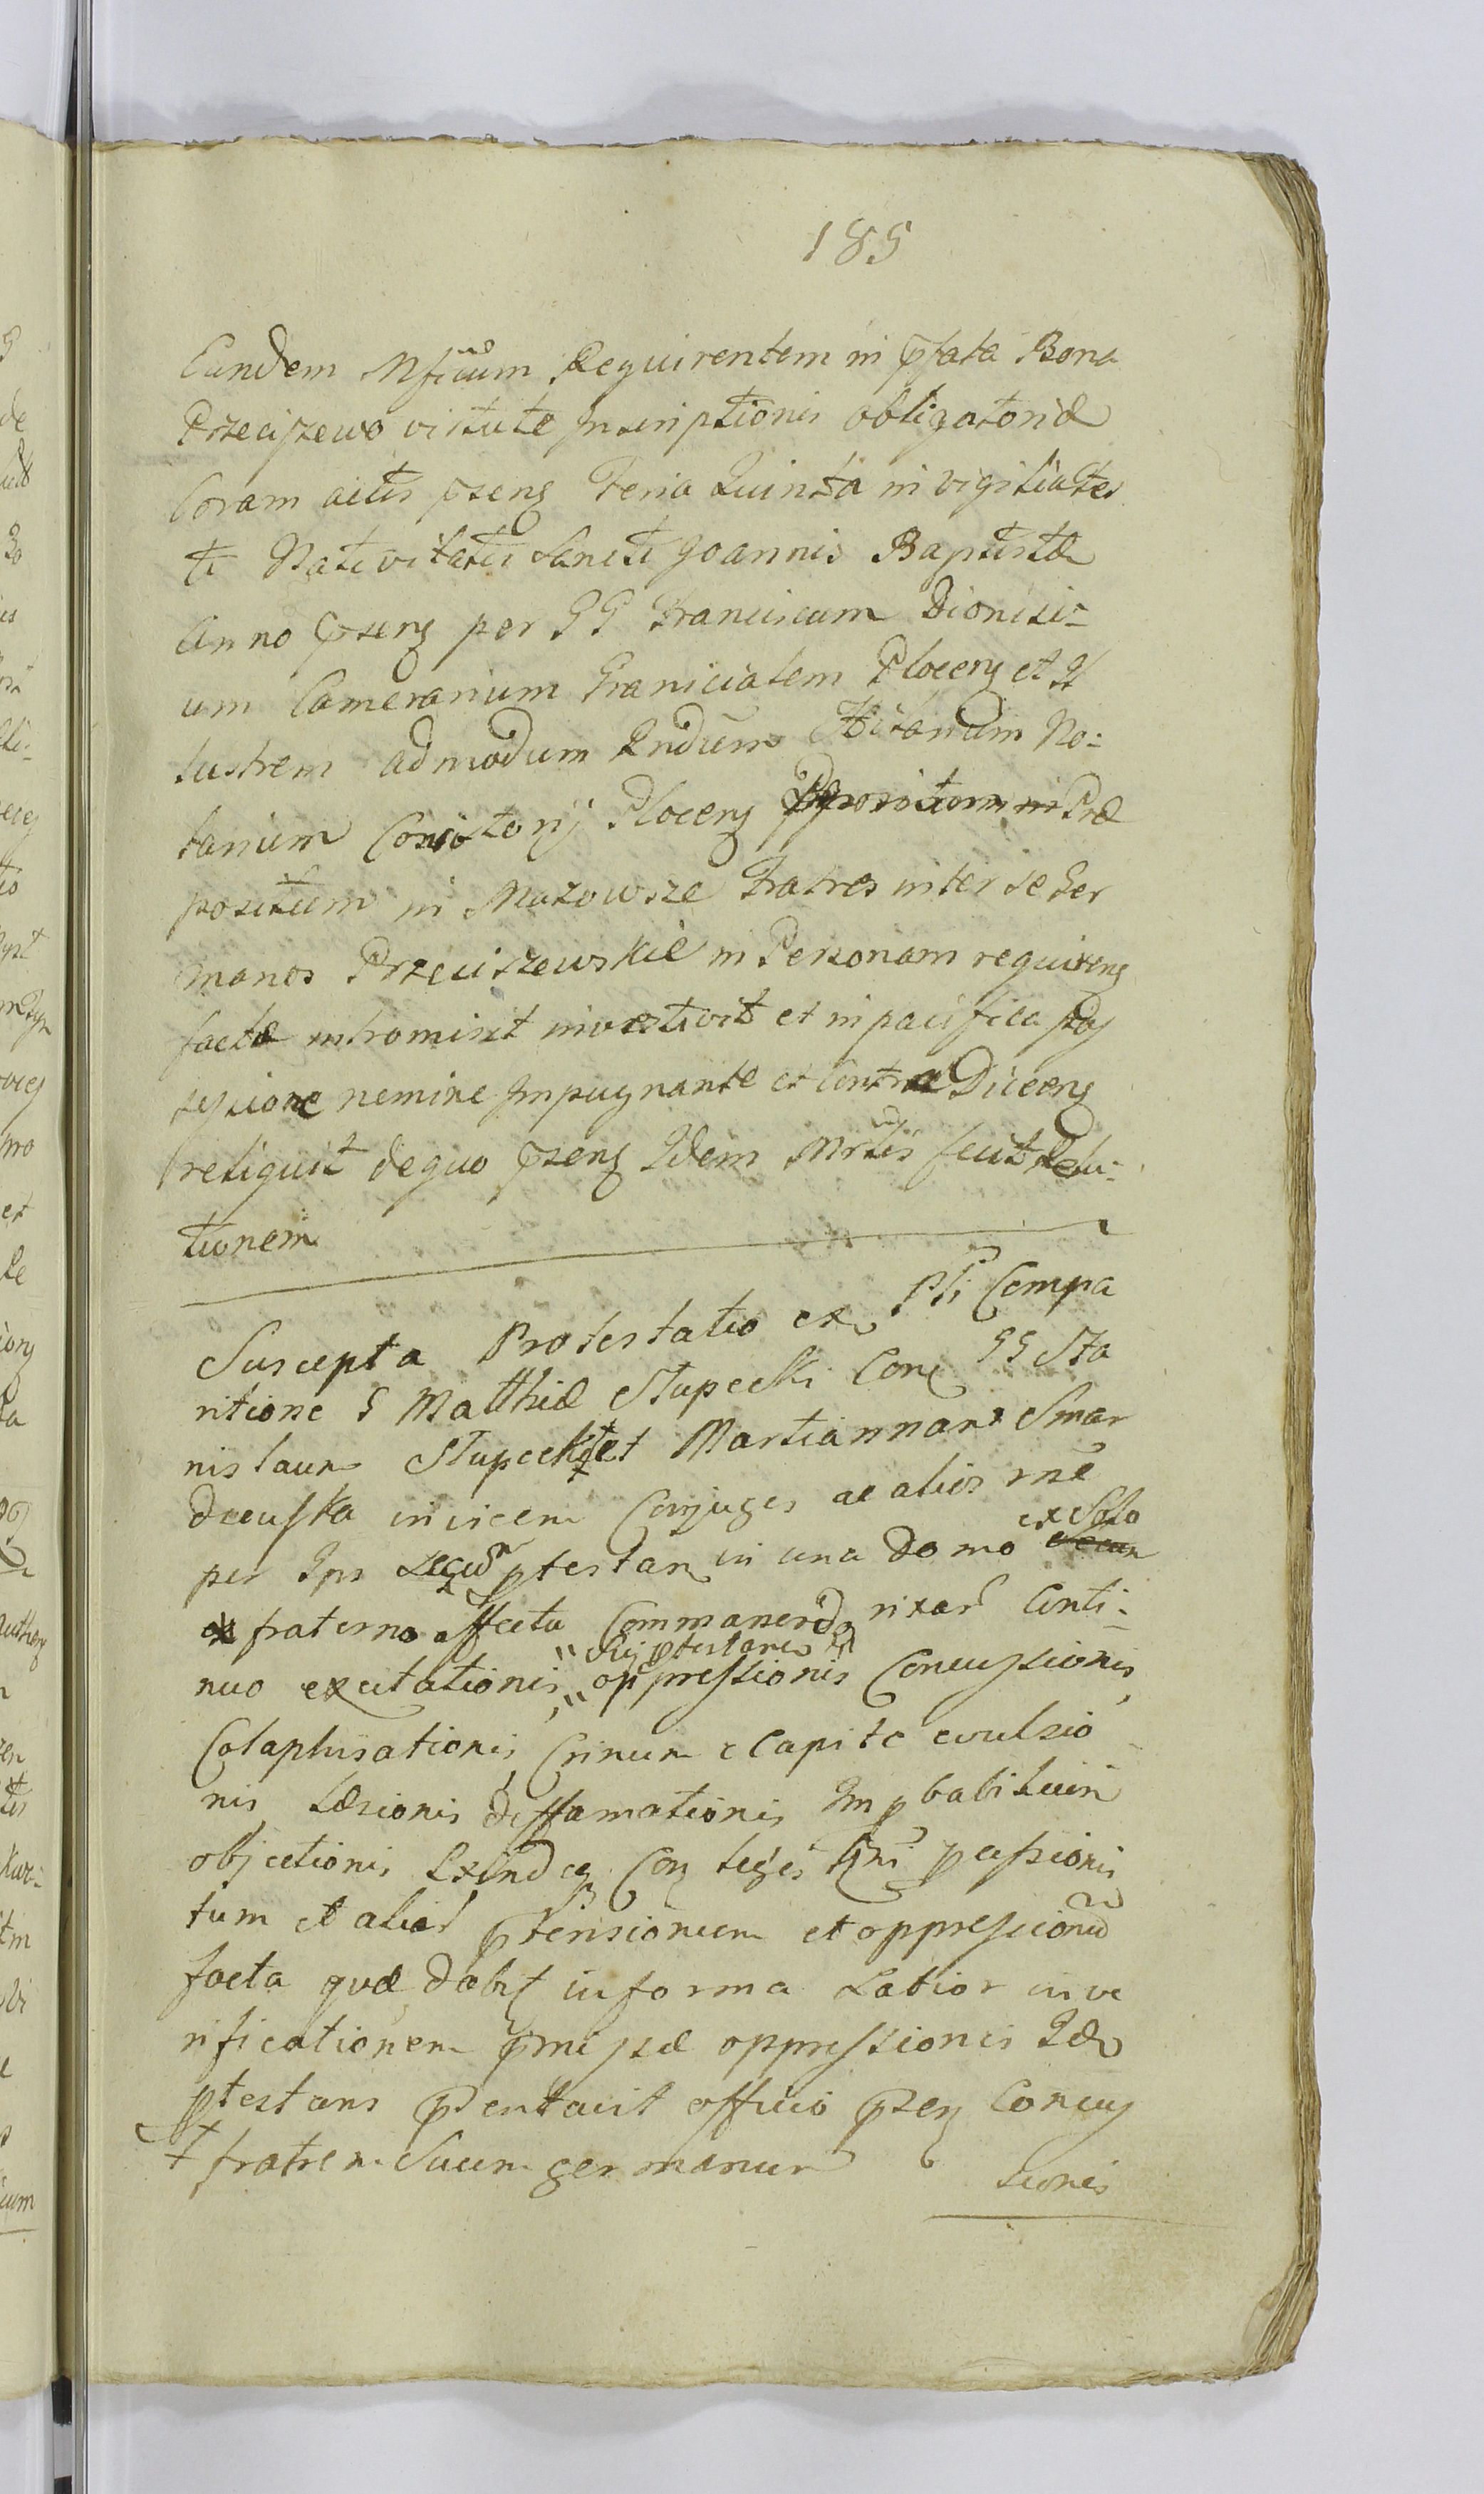 185
Eundem Mfcum Requirentem in pfata Bona
Przeciszewo virtute Inscriptionis obligatoriæ
Coram actis psens Feria Quinta in vigilia Fes
ti Nativitatis Sancti Joannis Baptistæ
Anno psens per GG Franciscum Dionisi=
um Camerarium Granicialem Plocens et Il
lustrem admodum Rndum Notarium No=
tarium Consistorij Plocens Præ
positum in Mazowsze Fratres inter se Ger
manos Przeciszewskie in Personam requirens
factæ intromisit investivit et in pacifica pos
sessione nemine Impugnante et Contra Dicens
reliquit de quo psens Idem Mrlis fecit Rela=
tionem
Suscepta Protestatio ex Pti Compa
ritione G Matthiæ Słupecki Con GG Sta
nislaum Słupecki et Martiannam Smar
dzewska invicem Conjuges ac alios rne
per Ips ptestan in una Domo
ex Solo
fraterno affectu Commanendo rixar Conti=
huj ptestantis
nuo excitationis oppressionis Concussionis
Colaphisationis Crinum e Capite evulsio
nis Læsionis deffamationis Impbabilium
objectionis Exindeq Con leges passionis
tum et alior ptensionum et oppressionum
facta quæ dabit in forma Latior in ve
rificationem pmissæ oppressionis Idem
ptestans psentavit officio psen Concus
+ fratrem Suum germanum
sionis